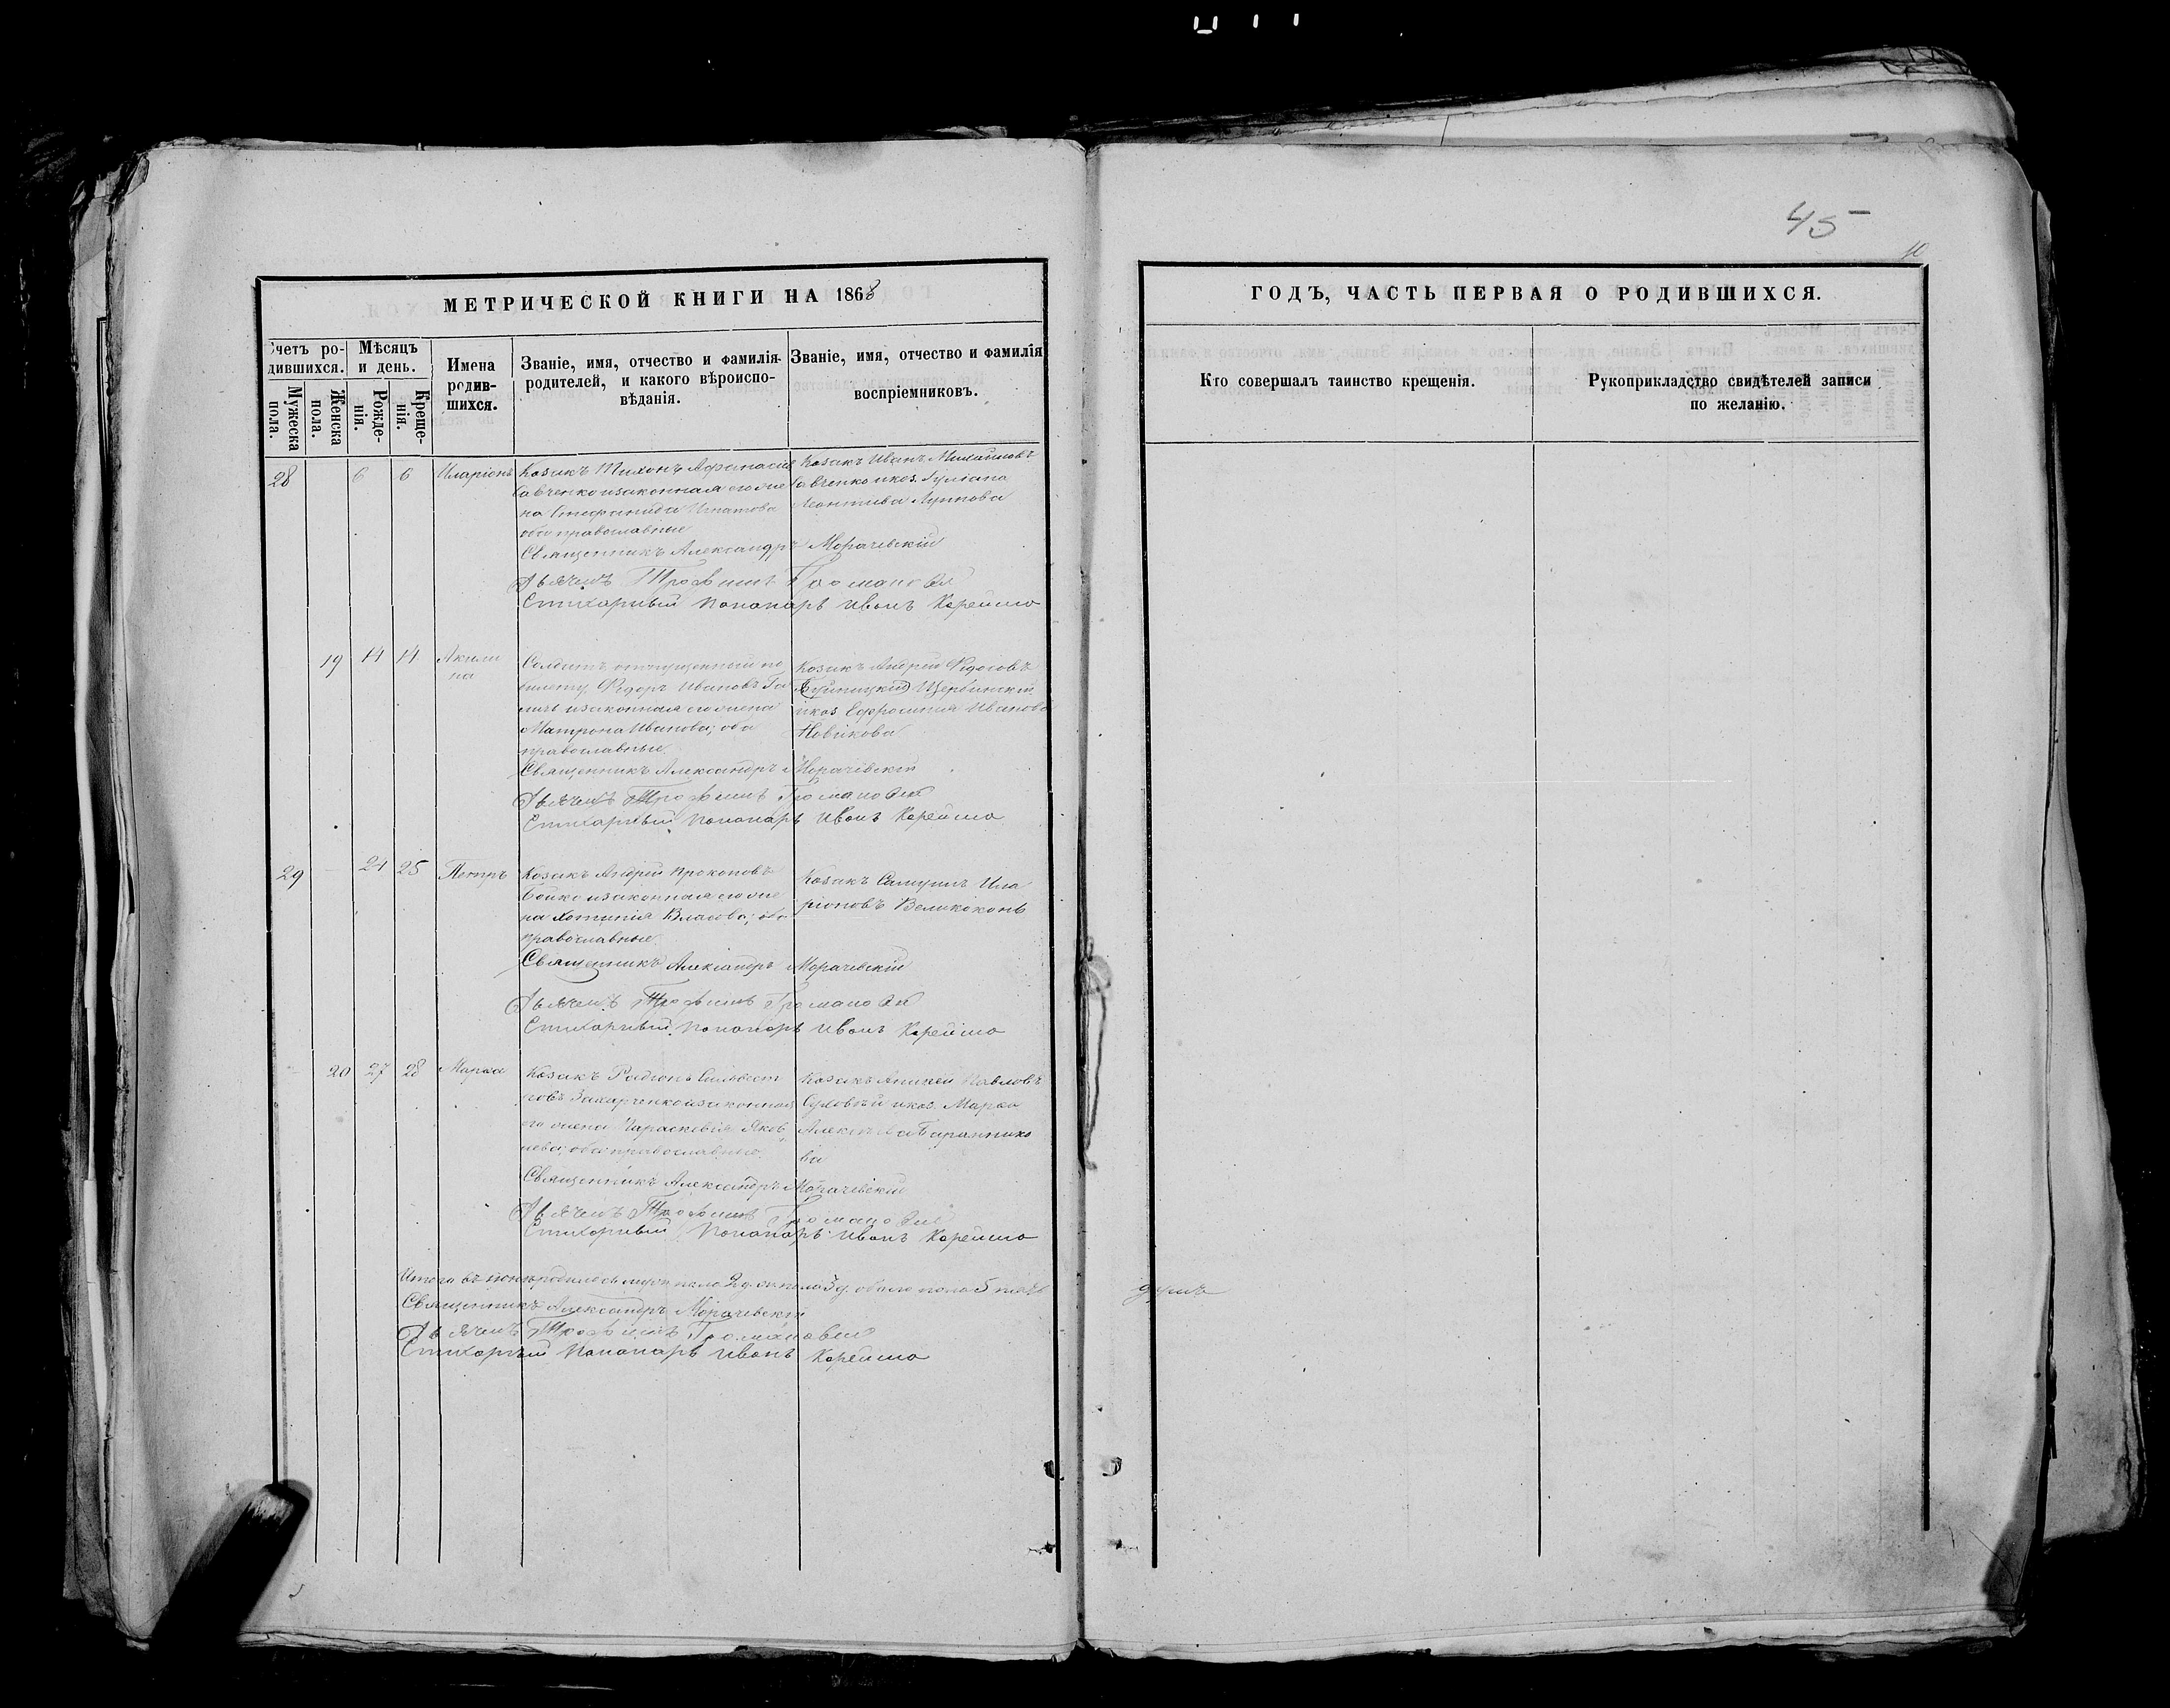 45
10
МЕТРИЧЕСКОЙ КНИГИ НА 1868
ГОДЪ, ЧАСТЬ ПЕРВАЯ О РОДИВШИХСЯ.
Счетъ ро-
дившихся.
Мужеска
пола.
Женска
пола.
Мѣсяцъ
и день.
Рожде-
нія.
Креще-
нія.
Имена
родив-
шихся.
Званіе, имя, отчество и фамилія
родителей, и какого вѣроиспо-
вѣданія.
Званіе, имя, отчество и фамилія
воспріемниковъ.
Кто совершалъ таинство крещенія.
Рукоприкладство свидѣтелей записи
по желанію.
28
6
6
Иларіонъ
Козакъ Тихонъ Афанасіев
Савченко изаконная его же
на Стефанида Игнатова
оба православные
Козакъ Иванъ Михайловъ
Савченко икоз. Гуліана
Леонтиева
Священникъ Александръ Морачевскій
Дьячекъ Трофимъ
Стихарный Пономарь Иванъ Корейшо
19
14
14
Акили
на
Солдатъ отпущенный по
билету, Федоръ Ивановъ
изаконная его жена
Матрона Иванова; оба
православные
Козакъ Андрей Федосовъ
Щербинскій
икоз. Ефросинія Иванова
Новикова
Священникъ Александръ Морачевскій
Дьячекъ Трофимъ
Стихарный Пономарь Иванъ Корейшо
29
24
25
Петръ
Козакъ Андрей Прокоповъ
Бойко изаконная его же
на Хотинія Власова; оба
православные
Козакъ Самуилъ Ила
ріоновъ Великоконь
Священникъ Александръ Морачевскій
Дьячекъ Трофимъ
Стихарный Пономарь Иванъ Корейшо
20
27
28
Марѳа
Козакъ Радіонъ Сильвест
ровъ Захарченко изаконная
его жена Параскевія Яков
лева; оба православные.
Козакъ Аникей Павловъ
Суловѣй икоз. Марѳа
Баранникo
ва
Священникъ Александръ Морачевскій
Дьячекъ Трофимъ
Стихарный Пономарь Иванъ Корейшо
Итого въ іюнѣ родилось муж. пола 2 д. ж. пола 3 д. обоего пола 5
душъ
Священникъ Александръ Морачевскій
Дьячекъ Трофимъ
Стихарный Пономарь Иванъ Корейшо